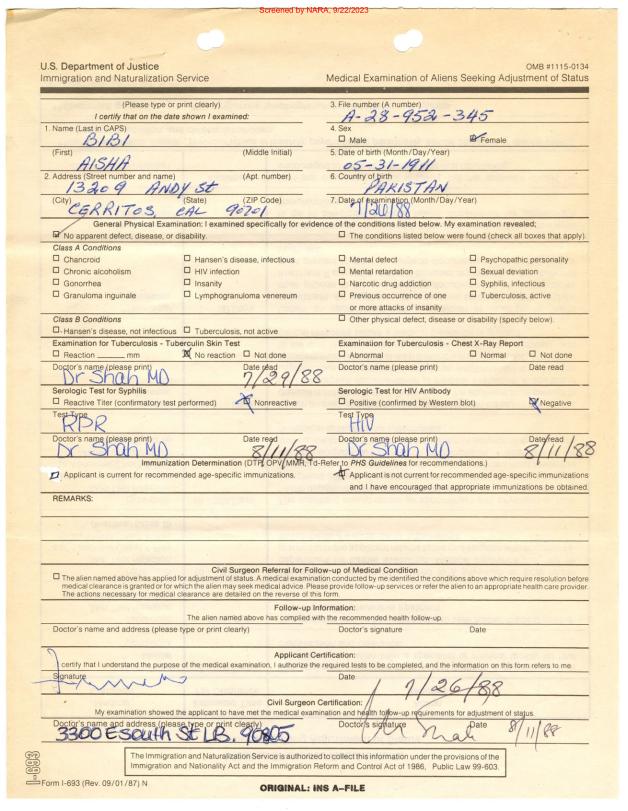 Screened by NARA, 9/22/2023
U.S. Department of Justice
Immigration and Naturalization Service
OMB #1115-0134
Medical Examination of Aliens Seeking Adjustment of Status
(Please type or print clearly)
I certify that on the date shown I examined:
3. File number (A number)
A-28-952-345
1. Name (Last in CAPS)
BIBI
4. Sex
Male
Female
(First)
(Middle Initial)
AISHA
5. Date of birth (Month/Day/Year)
05-31-1911
2. Address (Street number and name)
(Apt. number)
13209 ANDY St
6. Country of birth
PAKISTAN
(City)
(State)
(ZIP Code)
CERRITOS, CAL 90701
7. Date of examination (Month/Day/Year)
7/26/88
General Physical Examination: I examined specifically for evidence of the conditions listed below. My examination revealed;
No apparent defect, disease, or disability.
The conditions listed below were found (check all boxes that apply).
Class A Conditions
Chancroid
Hansen's disease, infectious
Mental defect
Psychopathic personality
Chronic alcoholism
HIV infection
Mental retardation
Sexual deviation
Gonorrhea
Insanity
Narcotic drug addiction
Syphilis, infectious
Granuloma inguinale
Lymphogranuloma venereum
Previous occurrence of one
or more attacks of insanity
Tuberculosis, active
Class B Conditions
Other physical defect, disease or disability (specify below).
Hansen's disease, not infectious
Tuberculosis, not active
Examination for Tuberculosis - Tuberculin Skin Test
Reaction ______ mm
No reaction
Not done
Examination for Tuberculosis - Chest X-Ray Report
Abnormal
Normal
Not done
Doctor's name (please print)
Date read
Dr Shah MD 7/29/88
Doctor's name (please print)
Date read
Serologic Test for Syphilis
Reactive Titer (confirmatory test performed)
Nonreactive
Serologic Test for HIV Antibody
Positive (confirmed by Western blot)
Negative
Test Type
RPR
Test Type
HIV
Doctor's name (please print)
Date read
Dr Shah MD 8/11/88
Doctor's name (please print)
Date read
Dr Shah MD 8/11/88
Immunization Determination (DTP, OPV, MMR, Td-Refer to PHS Guidelines for recommendations.)
Applicant is current for recommended age-specific immunizations.
Applicant is not current for recommended age-specific immunizations
and I have encouraged that appropriate immunizations be obtained.
REMARKS:
Civil Surgeon Referral for Follow-up of Medical Condition
The alien named above has applied for adjustment of status. A medical examination conducted by me identified the conditions above which require resolution before
medical clearance is granted or for which the alien may seek medical advice. Please provide follow-up services or refer the alien to an appropriate health care provider.
The actions necessary for medical clearance are detailed on the reverse of this form.
Follow-up Information:
The alien named above has complied with the recommended health follow-up.
Doctor's name and address (please type or print clearly)
Doctor's signature
Date
Applicant Certification:
I certify that I understand the purpose of the medical examination, I authorize the required tests to be completed, and the information on this form refers to me.
Signature
Date
7/26/88
Civil Surgeon Certification:
My examination showed the applicant to have met the medical examination and health follow-up requirements for adjustment of status.
Doctor's name and address (please type or print clearly)
Doctor's signature
Date
3300 E South St LB. 90805
8/11/88
The Immigration and Naturalization Service is authorized to collect this information under the provisions of the
Immigration and Nationality Act and the Immigration Reform and Control Act of 1986, Public Law 99-603.
Form I-693 (Rev. 09/01/87) N
ORIGINAL: INS A-FILE